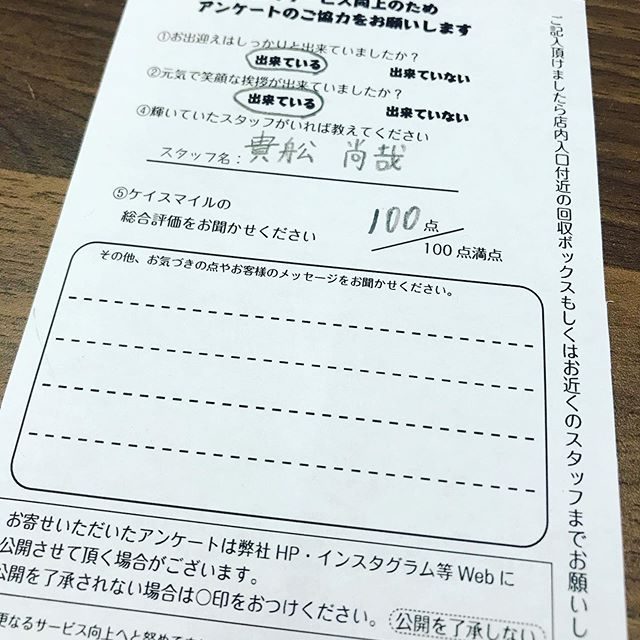 ービス向上のため
アンケートのご協力をお願いします
①お出迎えはしっかりと出来ていましたか？
出来ている 出来ていない
②元気で笑顔な挨拶が出来ていましたか？
出来ている 出来ていない
④輝いていたスタッフがいれば教えてください
スタッフ名：貴船 尚哉
⑤ケイスマイルの
総合評価をお聞かせください
100点
100点満点
その他、お気づきの点やお客様のメッセージをお聞かせください。
お寄せいただいたアンケートは弊社HP・インスタグラム等Webに
公開させて頂く場合がございます。
公開を了承されない場合は〇印をおつけください。 公開を了承しない
更なるサービス向上へと努めてま
ご記入頂けましたら店内入口付近の回収ボックスもしくはお近くのスタッフまでお願いし